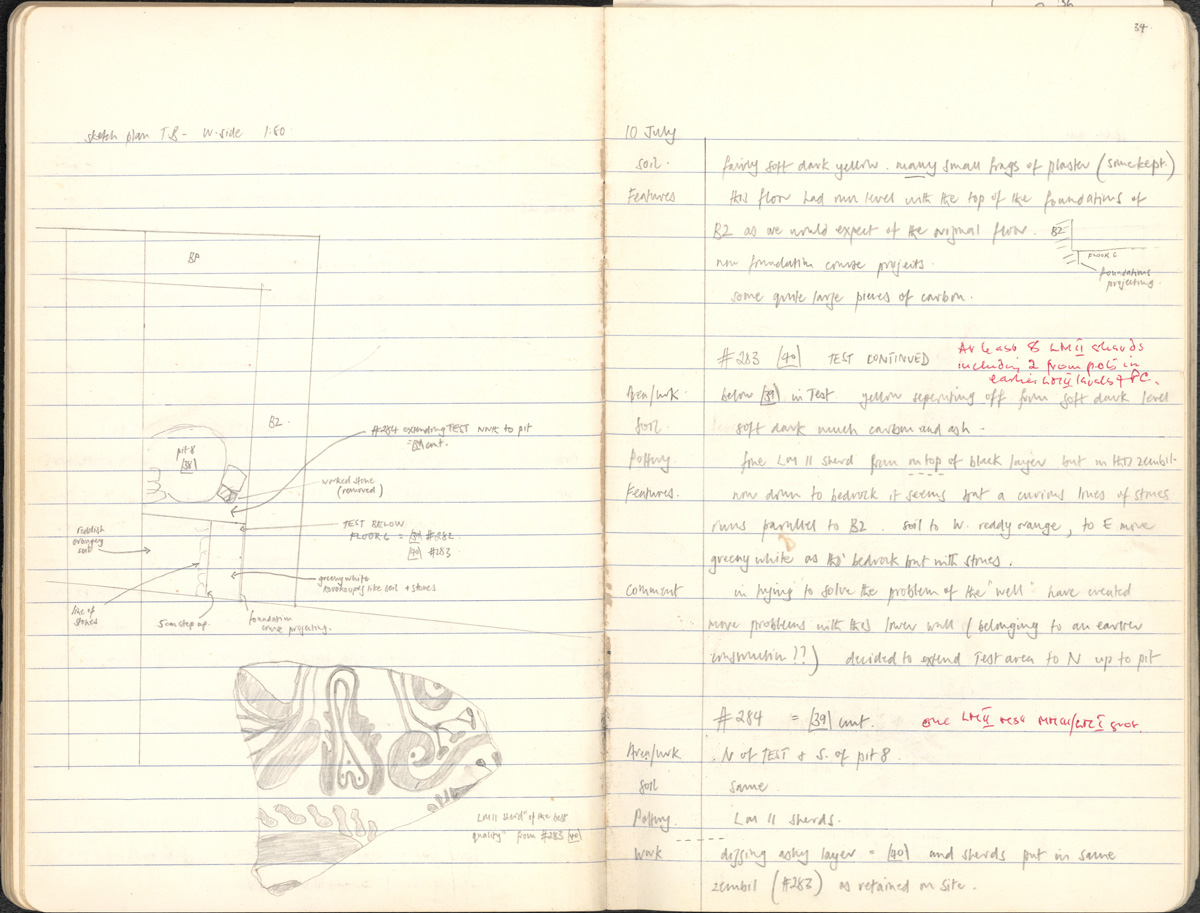 sketch plan T.B - W. side 1:50
BP
B2.
pit 8
[38]
#284 extending TEST NNW to pit
= [39] cont.
worked stone
(removed)
TEST BELOW
FLOOR 6 = [39] #282
[40] #283
reddish
orangey
soil
greeny white
like soil + stones
line of
stones
5cm step up.
foundation
course projecting.
LM II sherd "of the best
quality" from #283 [40]
34
10 July
Soil. fairly soft dark yellow. many small frags of plaster (some kept.)
Features this floor had run level with the top of the foundations of
B2 as we would expect of the original floor.
now foundation course projects.
B2
FLOOR 6
foundations
projecting.
some quite large pieces of carbon.
#283 [40] TEST CONTINUED
At least 8 LM II sherds
including 2 from pots in
earlier LM II levels + PC.
Area/wk below [39] in Test yellow seperating off from soft dark level
Soil soft dark much carbon and ash -
Pottery fine LM II sherd from on top of black layer but in this zembil -
Features. now down to bedrock it seems but a curious lines of stones
runs parallel to B2. soil to W. reddy orange, to E more
greeny white as the bedrock but with stones.
Comment in trying to solve the problem of the "well" have created
more problems with this lower wall (belonging to an earlier
construction??) decided to extend Test area to N up to pit
#284 = [39] cont.
one LM II rest MM III/LM I
Area/wk . N of TEST & S. of pit 8.
Soil same.
Pottery LM II sherds.
Work digging ashy layer = [40] and sherds put in same
zembil (#283) as retained on site.